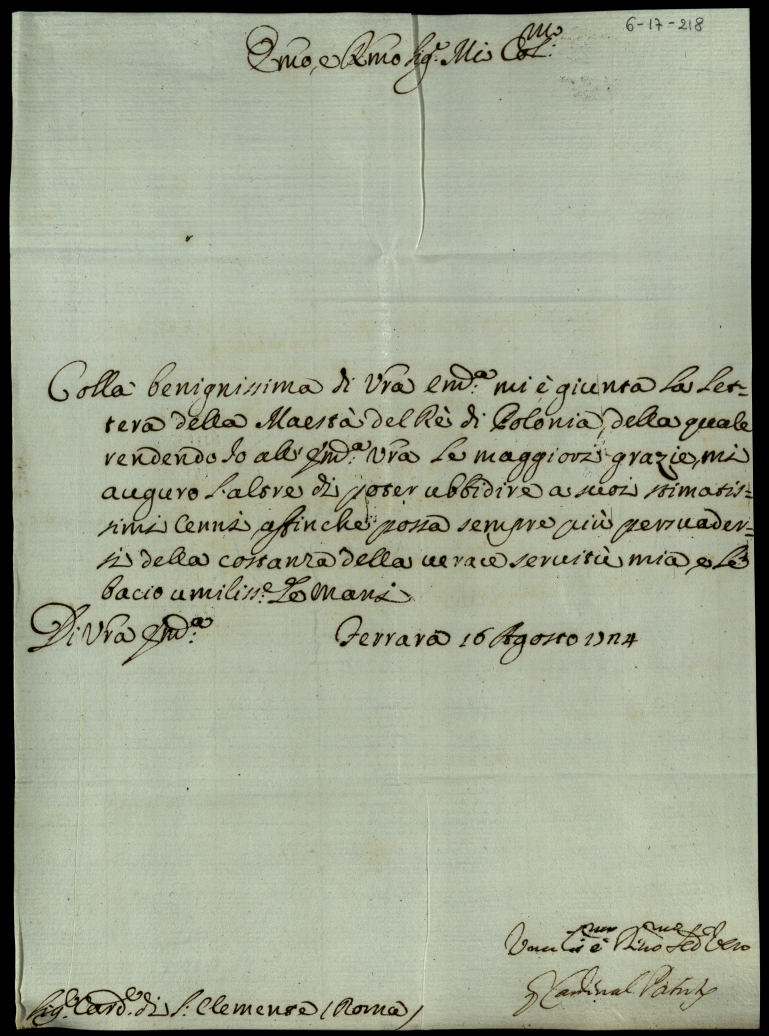 6-17-218
Emo, e Rmo Sig.r Mio Col.mo
Colla benignissima di Vrã Em.a mi è giunta la Let-
tera della Maestà del Rè di Polonia, della quale
rendendo Io all' Em.a Vrã le maggiori grazie, mi
auguro l'altre di poter ubbidire a suoi stimatis-
simi Cenni affinche possa sempre più persuader-
si della costanza della verace servitù mia e le
bacio umiliss.e le Mani
Di Vrã Em.a Ferrara 16 Agosto 1724
Sered Vero
Cardinal Patrizi
Sig.r Card.le di S. Clemente (Roma)